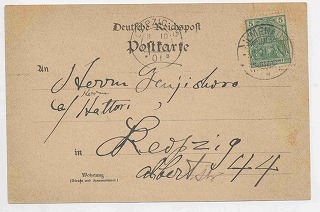 Deutsche Reichspost
Postkarte
An
Herrn Genjishoro
Herrn
c/ Hattori
in Leipzig
Wohnung
(Straße und Hausnummer)
Albertstr 44
5